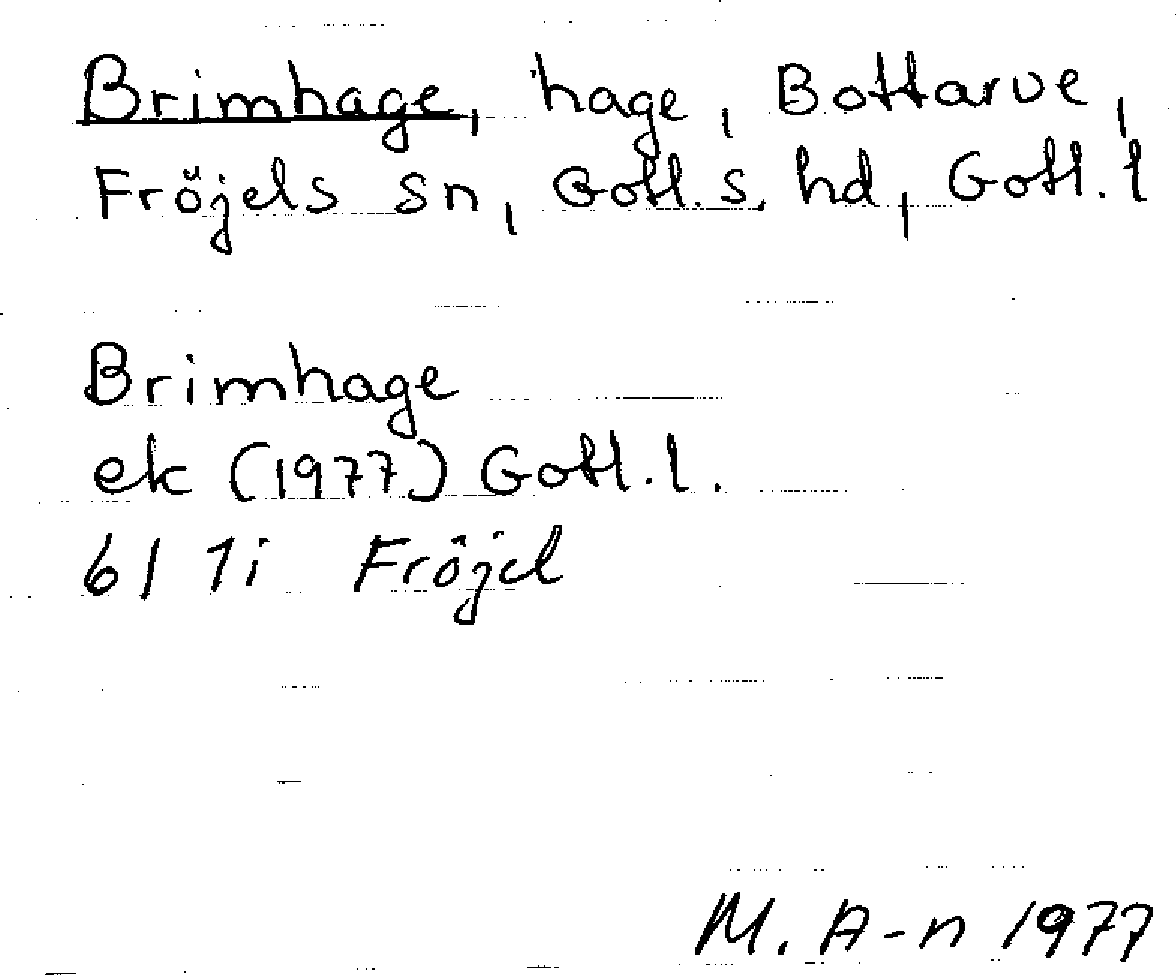 Brimhage, hage, Bottarve,
Fröjels sn, Gotl. s. hd, Gotl. l
Brimhage
ek (1977) Gotl. l.
6I 1i Fröjel
M. A-n 1977